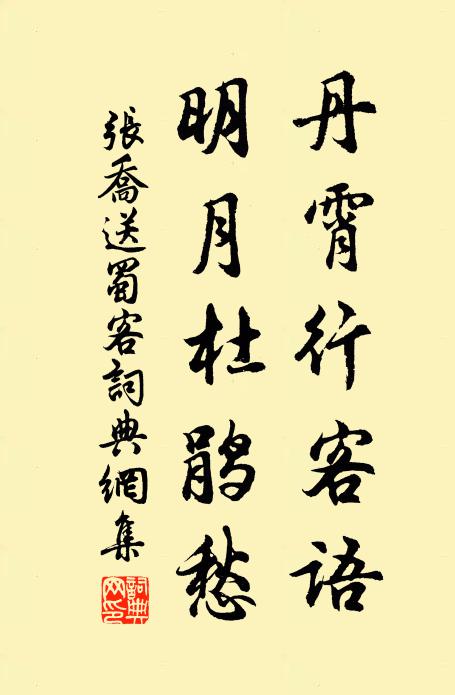 丹霄行客語
明月杜鵑愁
張喬送蜀客詞典網集
詞典
网印